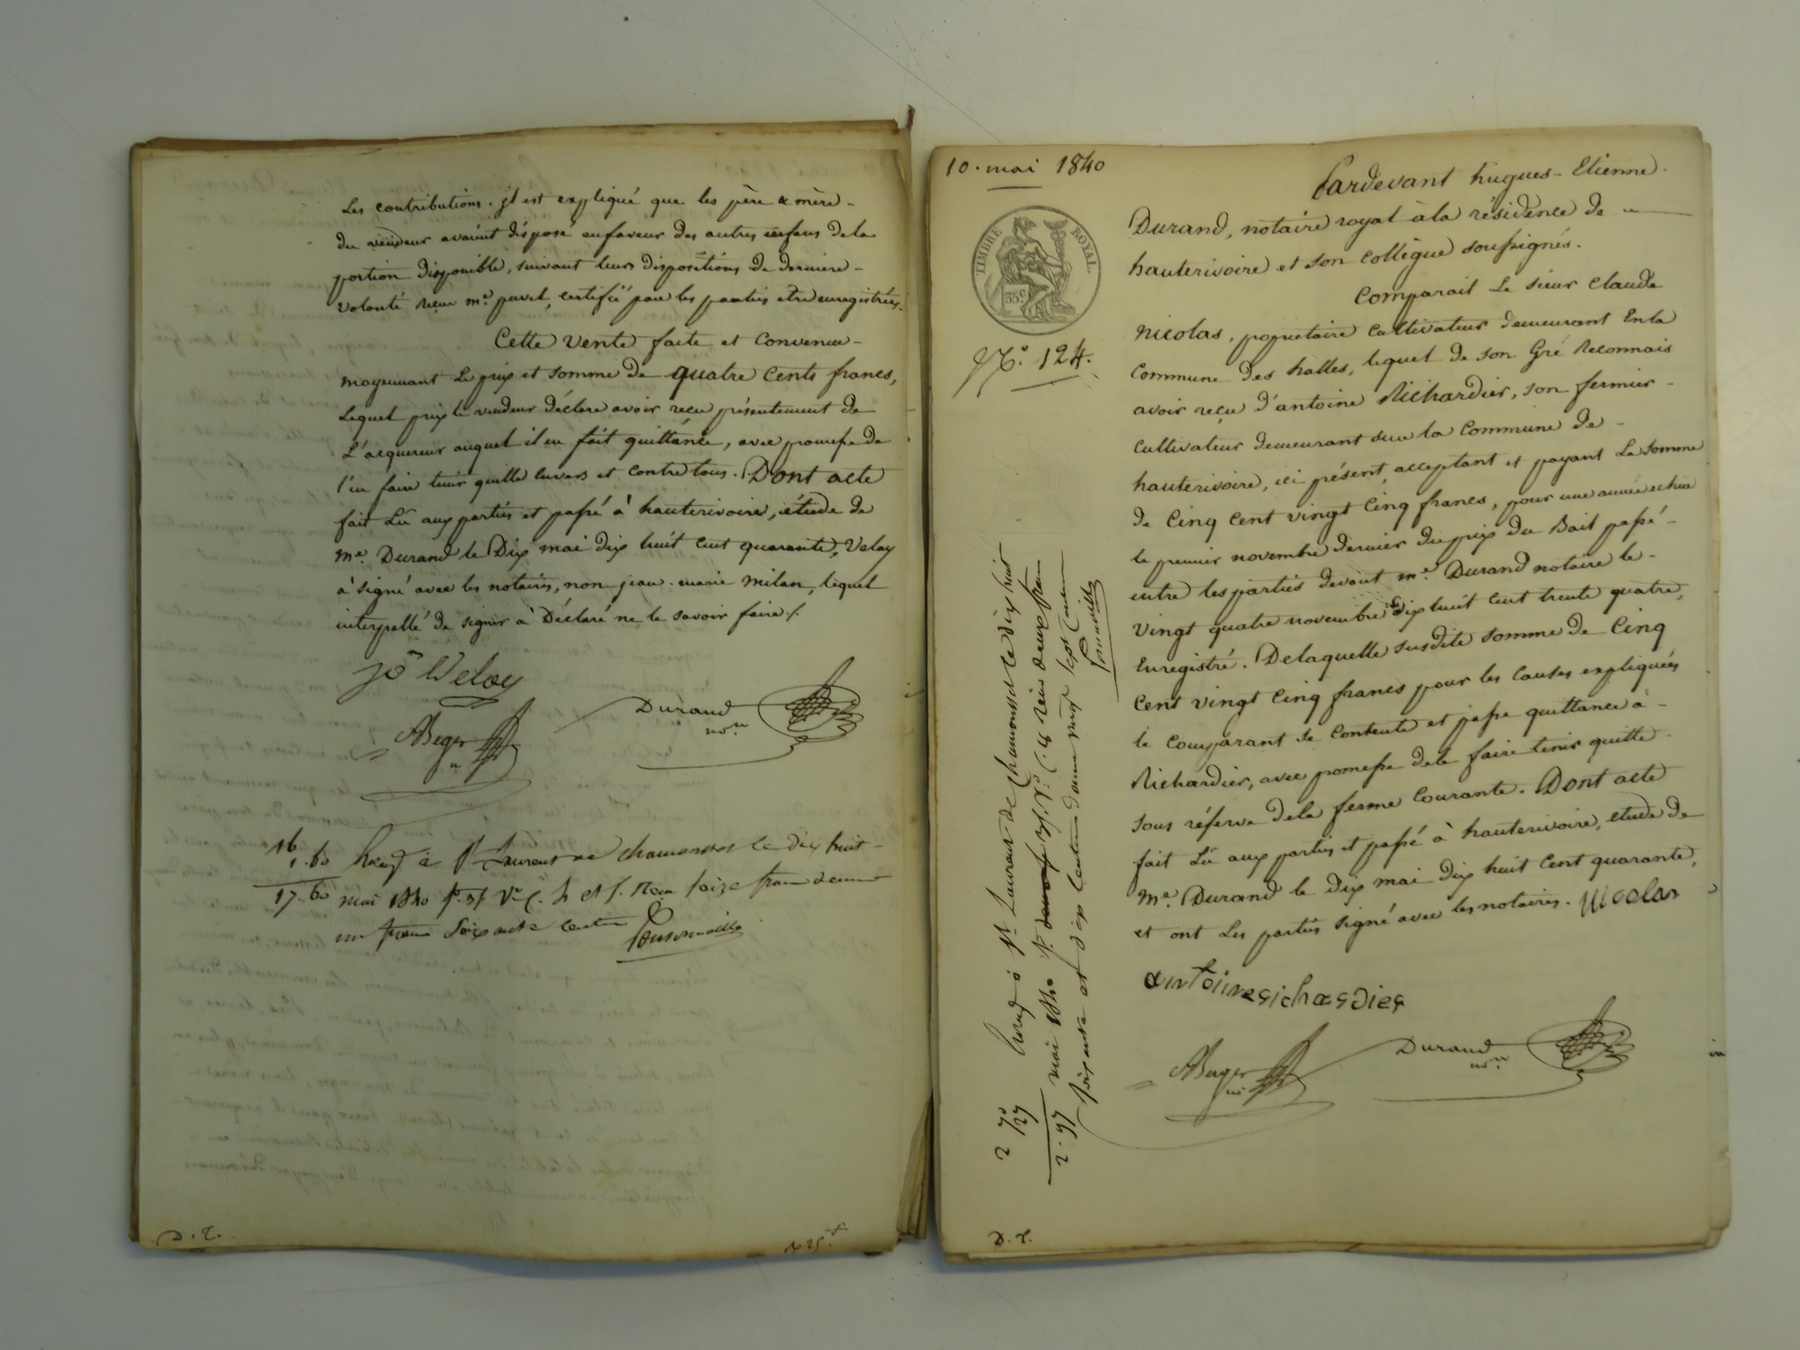 Les contributions. jl est expliqué que les père & mère -
du vendeur avaient disposé enfaveur des autres enfans dela
portion disponible, suivant leurs dispositions de dernière -
volonté reçue me. pavet, certifié par les parties être enregistrées.
Cette vente faite et convenue -
moyennant Le prix et somme de quatre Cents francs,
Lequel prix le vendeur déclare avoir reçu présentement de
L'acquereur auquel il en fait quittance, avec promesse de
l'en faire tenir quitte envers et contre tous. Dont acte
fait Lû aux parties et passé à hauterivoire, étude de
me. Durand le Dix mai dix huit cent quarante, Veloy
à signé avec les notaires, non jean-marie milan, lequel
interpellé de signer à Déclaré ne le savoir faire /.
jn Veloy
ABeger
Durand
no.re
16
1.60
17.60
Enreg à St Laurent de chamousset le dix huit -
mai 1840 fo. 37 Vo C. 4 et 5. Reçu seize francs
un franc soixante centimes
D. E.
10. mai 1840
TIMBRE ROYAL
35c
No. 124.
Pardevant hugues-Etienne.
Durand, notaire royal à la résidence de
hauterivoire et son collègue soussignés.
Comparait Le sieur Claude
Nicolas, propriétaire Cultivateur demeurant Enla
Commune des halles, lequel de son Gré Reconnais
avoir reçu d'antoine Richardier, son fermier -
Cultivateur demeurant sur la Commune de -
hauterivoire, ici présent, acceptant et payant La somme
de Cinq Cent vingt Cinq francs, pour une année echue
le premier novembre dernier du prix du Bail passé -
entre les parties devant me. Durand notaire le -
Vingt quatre novembre dix huit cent trente quatre,
Enregistré. Delaquelle susdite somme de Cinq
Cent vingt Cinq francs pour les Causes expliquées
le Comparant se Contente et passe quittance à -
Richardier, avec promesse dele faire tenir quitte
sous réserve dela ferme Courante. Dont acte
fait Lû aux parties et passé à hauterivoire, etude de
me. Durand le dix mai dix huit Cent quarante,
et ont Les parties signé avec les notaires. Nicolas
antoinerichardier
ABeger
Durand
no.re
Enreg à St Laurent de chamousset le dix huit
mai 1840 fo. 37. Vo. C. 4 reçu deux francs
soixante et dix centimes dixième vingt sept Centimes
2 70
27
2.97
D. E.